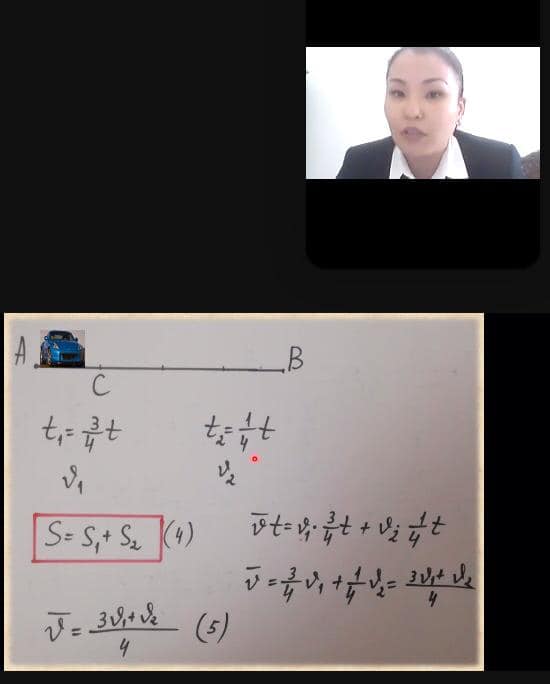 A B
C
t₁ = 3/4 t t₂ = 1/4 t
ϑ₁ ϑ₂
S = S₁ + S₂ (4) ϑ̄t = ϑ₁ · 3/4 t + ϑ₂ · 1/4 t
ϑ̄ = 3/4 ϑ₁ + 1/4 ϑ₂ = 3ϑ₁ + ϑ₂ / 4
ϑ̄ = 3ϑ₁ + ϑ₂ / 4 (5)